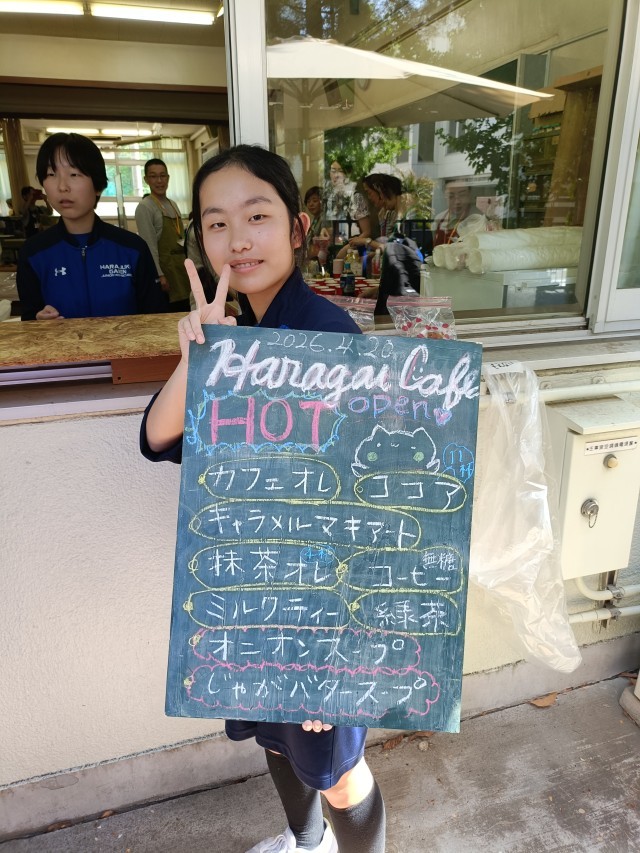 2026.4.20
Haragai Cafe
HOT open
11杯
カフェオレ ココア
キャラメルマキアート
抹茶オレ 無糖 コーヒー
ミルクティー 緑茶
オニオンスープ
じゃがバタースープ
HARAJUKU
GAIEN